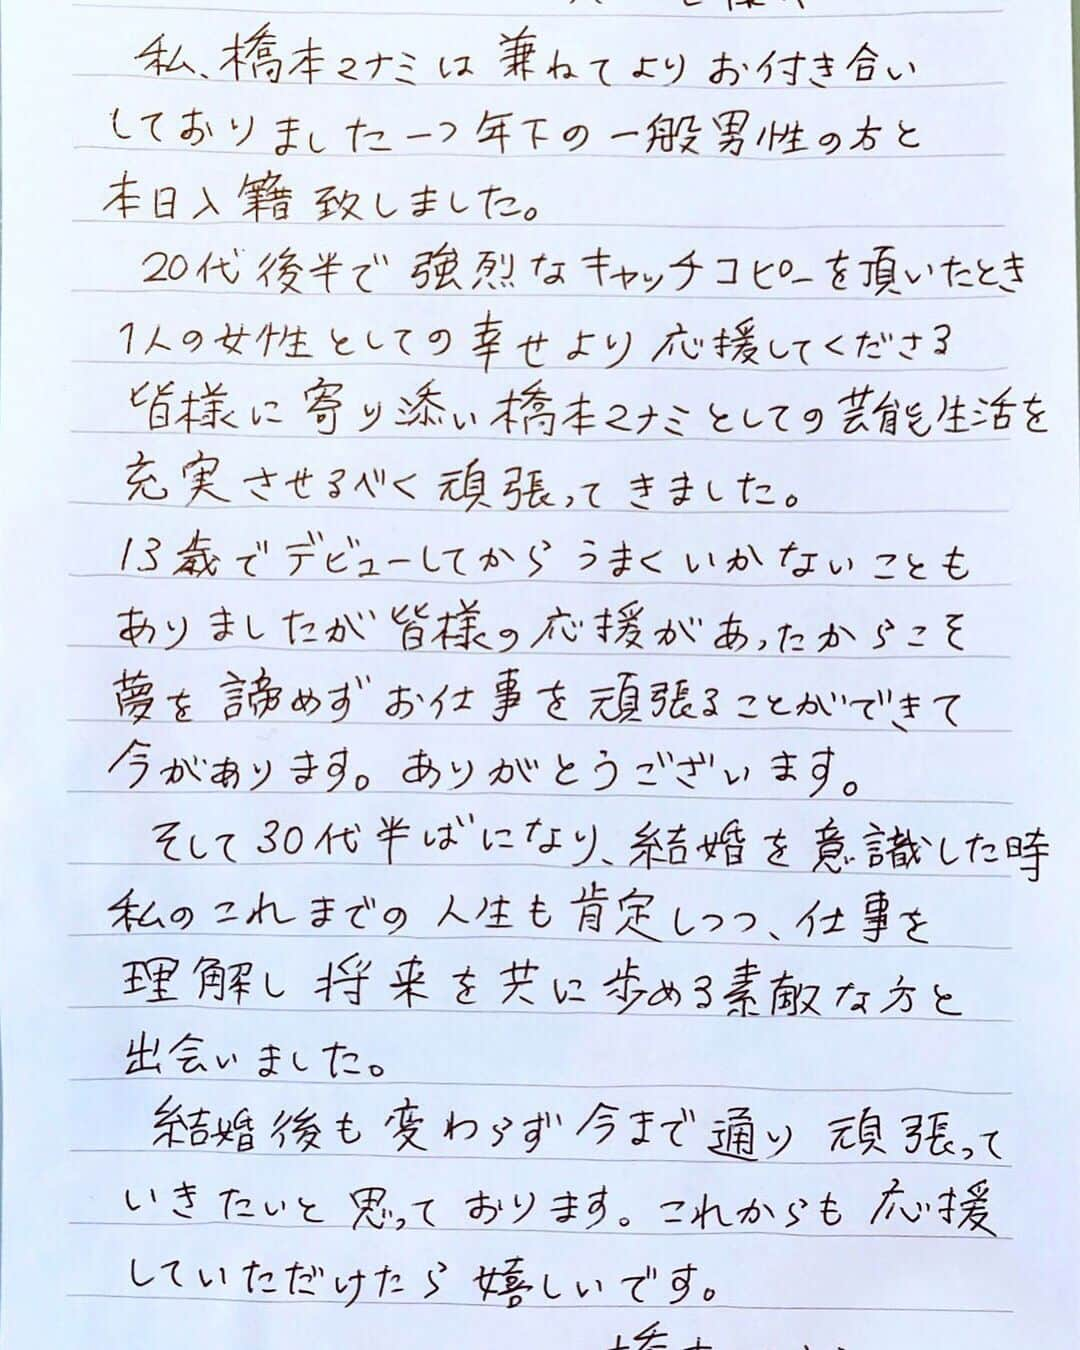 私、橋本マナミは兼ねてよりお付き合い
しておりました一つ年下の一般男性の方と
本日入籍致しました。
20代後半で強烈なキャッチコピーを頂いたとき
1人の女性としての幸せより応援してくださる
皆様に寄り添い橋本マナミとしての芸能生活を
充実させるべく頑張ってきました。
13歳でデビューしてからうまくいかないことも
ありましたが皆様の応援があったからこそ
夢を諦めずお仕事を頑張ることができて
今があります。ありがとうございます。
そして30代半ばになり、結婚を意識した時
私のこれまでの人生も肯定しつつ、仕事を
理解し将来を共に歩める素敵な方と
出会いました。
結婚後も変わらず今まで通り頑張って
いきたいと思っております。これからも応援
していただけたら嬉しいです。